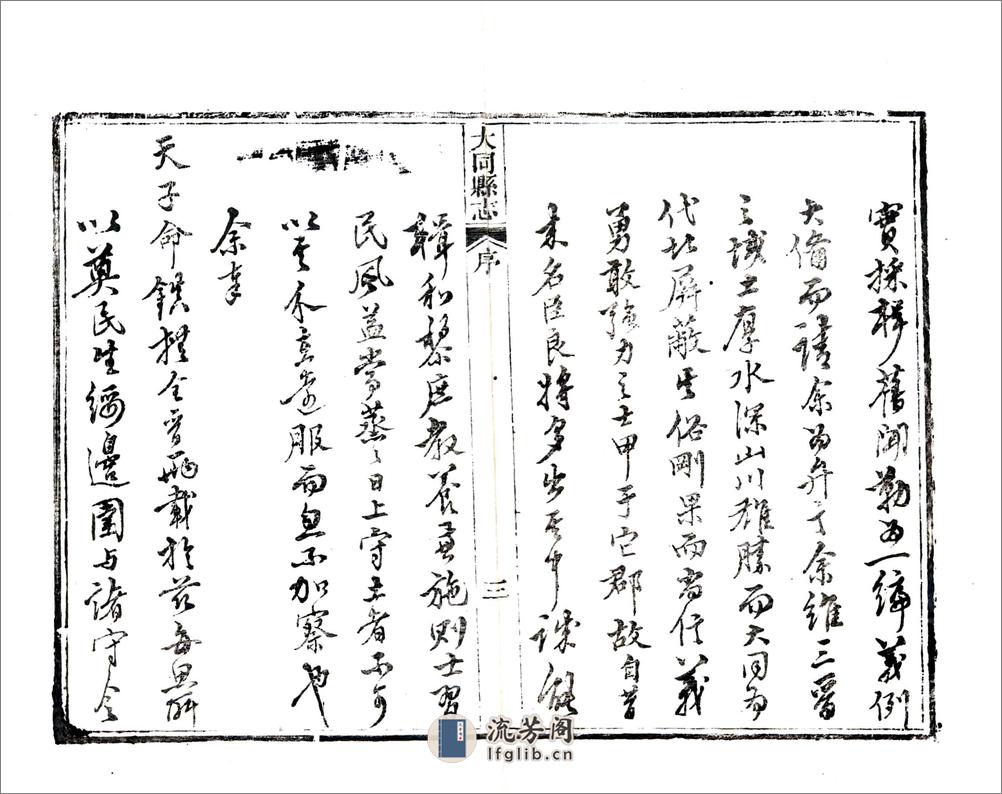 實採擇舊聞勒為一編義例
大備而請余為弁言余維三晉
之域土厚水深山川雄勝而大同為
代北屏蔽其俗剛果而尚信義
勇敢強力之士甲于它郡故自昔
來名臣良將多出其中誠能
大同縣志
序
三
輯和黎庶教養兼施則士習
民風益當蒸蒸日上守土者不可
以其永立邊服而忽不加察也
余奉
天子命鎮撫全晉兩載於茲每思所
以奠民生綏邊圉与諸守令
流芳阁
lfglib.cn